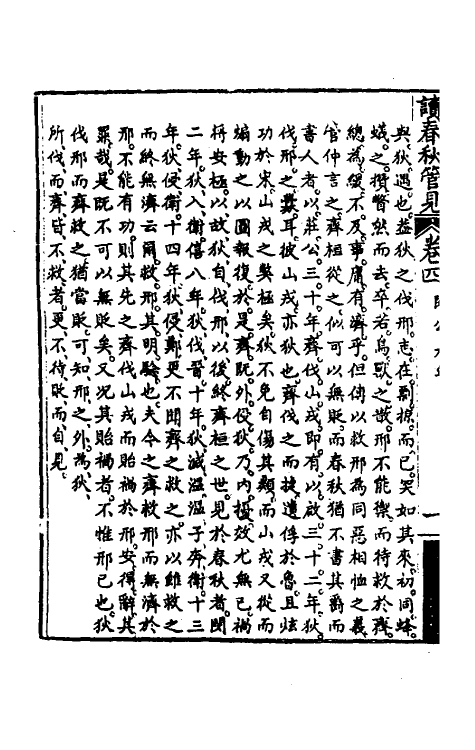 讀春秋管見 卷四 閔公元年 一
與狄遇也蓋狄之伐邢志在剽掠而已矣如其來初同蜂
蟻之攢瞥然而去卒若鳥獸之散邢不能禦而待救於齊
總為緩不及事庸有濟乎但傳以救邢為同惡相恤之義
管仲言之齊桓從之似可以無貶而春秋猶不書其爵而
書人者以莊公三十年齊伐山戎即有以啟三十二年狄
伐邢之釁耳彼山戎亦狄也齊伐之而捷遺俘於魯且炫
功於宋山戎之獘極矣狄不免自傷其類而山戎又從而
煽動之以圖報復於是齊既外侵狄乃內擾效尤無已禍
枬安極以故狄自伐邢以後終齊桓之世見於春秋者閔
二年狄入衛僖八年狄伐晉十年狄滅溫溫子奔衛十三
年狄侵衛十四年狄侵鄭更不聞齊之救之亦以雖救之
而終無濟云爾救邢其明驗也夫今之齊救邢而無濟於
邢不能有功則其先之齊伐山戎而貽禍於邢安得辭其
罪哉是既不可以無貶矣又況其貽禍者不惟邢已也狄
伐邢而齊救之猶當貶可知邢之外為狄
所伐而齊皆不救者更不待貶而自見